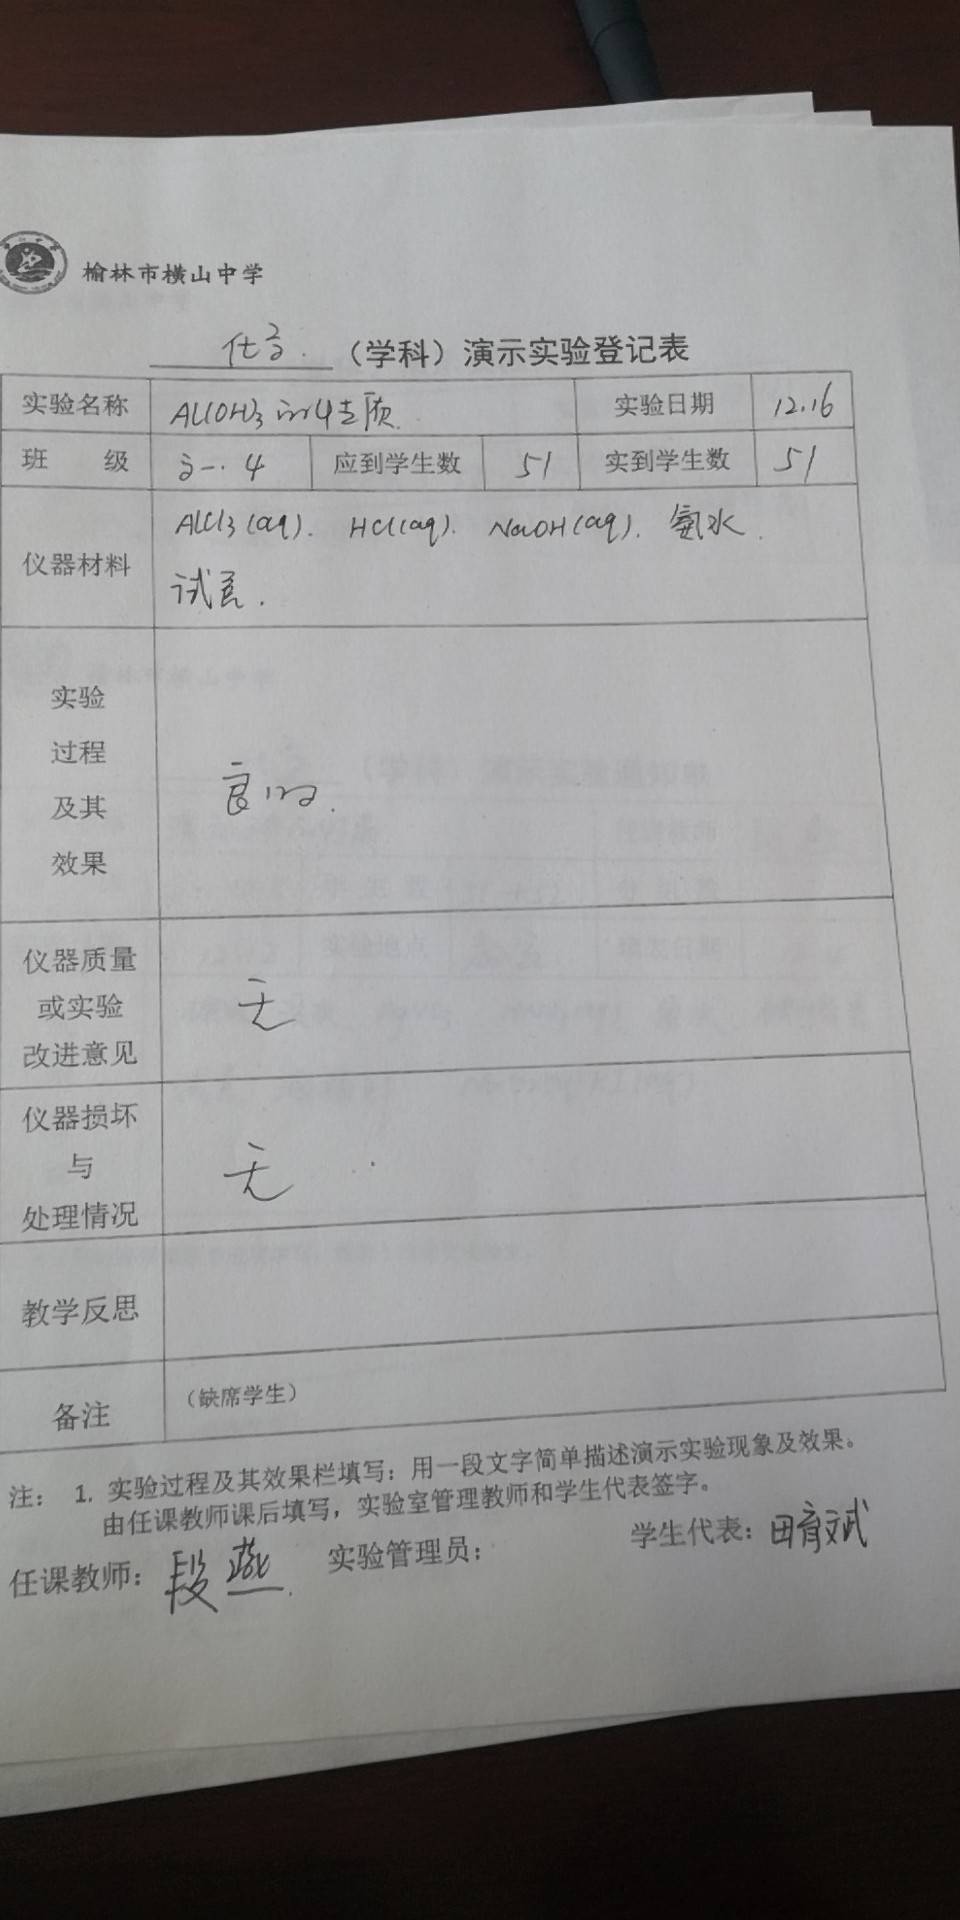 榆林市横山中学
化学（学科）演示实验登记表
实验名称 Al(OH)3的性质 实验日期 12.16
班 级 高一.4 应到学生数 51 实到学生数 51
仪器材料 AlCl3(aq). HCl(aq). NaOH(aq). 氨水.
试管.
实验
过程
及其
效果
良好.
仪器质量
或实验
改进意见
无
仪器损坏
与
处理情况
无
教学反思
备注 （缺席学生）
注： 1. 实验过程及其效果栏填写：用一段文字简单描述演示实验现象及效果。
由任课教师课后填写，实验室管理教师和学生代表签字。
任课教师：段燕. 实验管理员： 学生代表：田育斌